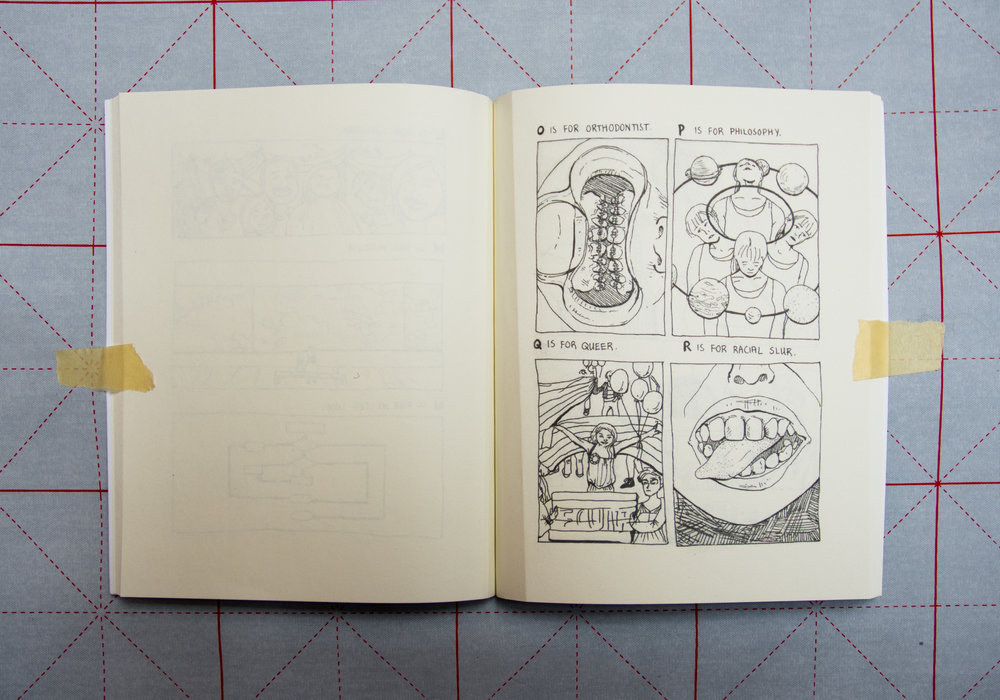 O IS FOR ORTHODONTIST.
P IS FOR PHILOSOPHY.
Q IS FOR QUEER.
R IS FOR RACIAL SLUR.